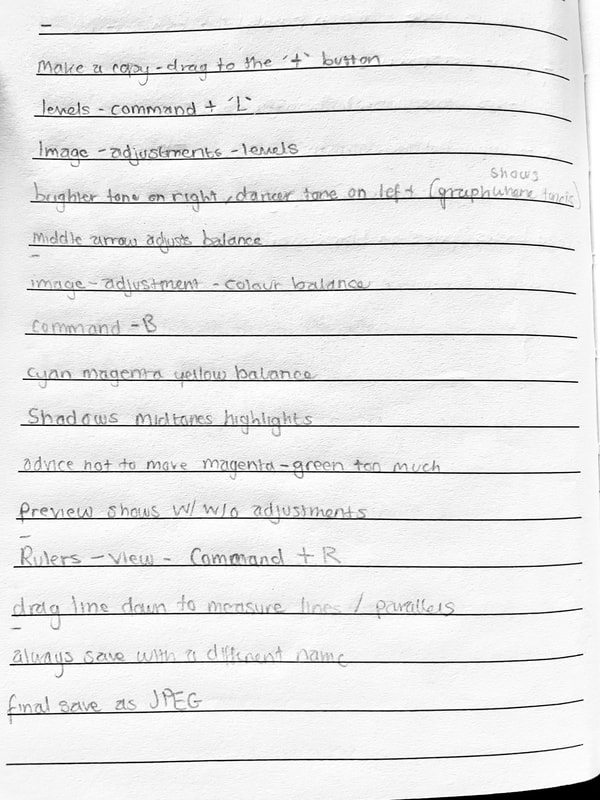 -
Make a copy - drag to the '+' button
levels - command + 'L'
Image - adjustments - levels
shows
brighter tone on right, darker tone on left (graph where tone is)
middle arrow adjusts balance
-
image - adjustment - colour balance
command - B
cyan magenta yellow balance
Shadows midtones highlights
advice not to move magenta - green too much
Preview shows w/ w/o adjustments
-
Rulers - view - Command + R
drag line down to measure lines / parallels
-
always save with a different name
final save as JPEG